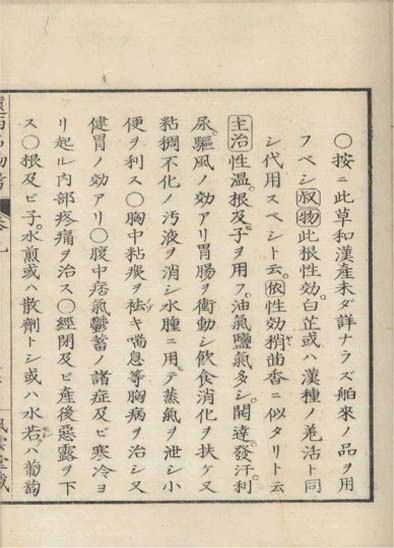 〇按ニ此草和漢產未ダ詳ナラズ舶來ノ品ヲ用
フベシ叔物此根性効白芷或ハ漢種ノ羗活ト同
シ代用スベシト云依性効稍茴香ニ似タリト云
主治性溫根及子ヲ用フ油氣鹽氣多シ開達發汗利
尿驅風ノ効アリ胃腸ヲ衝動シ飮食消化ヲ扶ケ又
粘稠不化ノ汚液ヲ消シ水腫ニ用テ蒸氣ヲ泄シ小
便ヲ利ス〇胸中粘痰ヲ袪キ喘息等胸病ヲ治シ又
健胃ノ効アリ〇腹中痞氣鬱蓄ノ諸症及ビ寒冷ヨ
リ起ル內部疼痛ヲ治ス〇經閉及ビ產後惡露ヲ下
ス〇根及ビ子水煎或ハ散劑トシ或ハ水若クハ葡萄